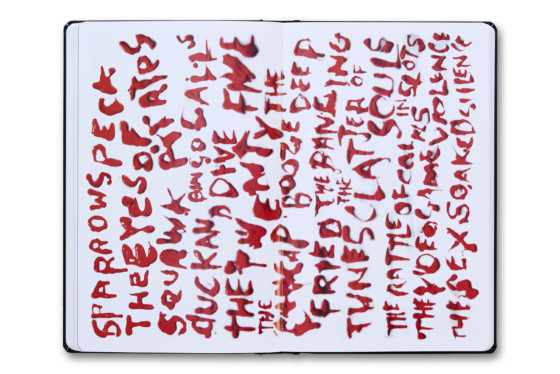 SPARROWS PECK
THE EYES OF
SQUAWK
CALLS
DUCK AND DIVE
THE TWENTY FIVE
THE
THE
BOOZE DEEP
FRIED THE
THE
TUNES CLATTER OF SOULS
THE RATTLE OF COINS IN SLOTS
THE VIDEO GAME VIOLENCE
THE SEX SOAKED SILENCE